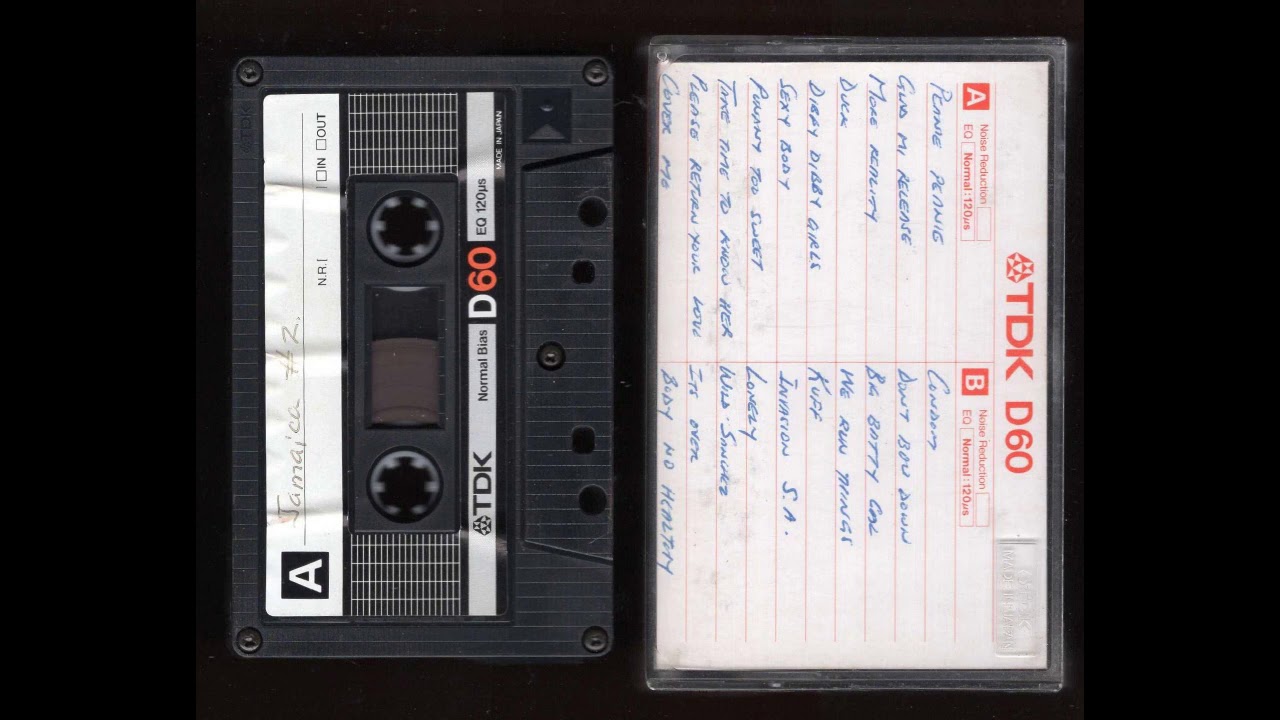 A
Jamaica #2.
N.R.[ ]IN OUT
TDK Normal Bias D60 EQ 120µs
MADE IN JAPAN
TDK
TDK D60
A Noise Reduction
EQ Normal:120µs
MI RELEASE
MORE REALITY
DUCK
DIBBY DIBBY GIRLS
SEXY BODY
PUNANY TOO SWEET
TAKE TIME TO KNOW HER
PLEASE RETURN YOUR LOVE
COVER ME
B Noise Reduction
EQ Normal:120µs
CONDOM
DONT BOW DOWN
BIG BATTY GAL
WE RUN THINGS
KUFF
INVASION S.A.
LONELY
WILD-SANCHEZ
ITS OVER
BODY NO HEALTHY